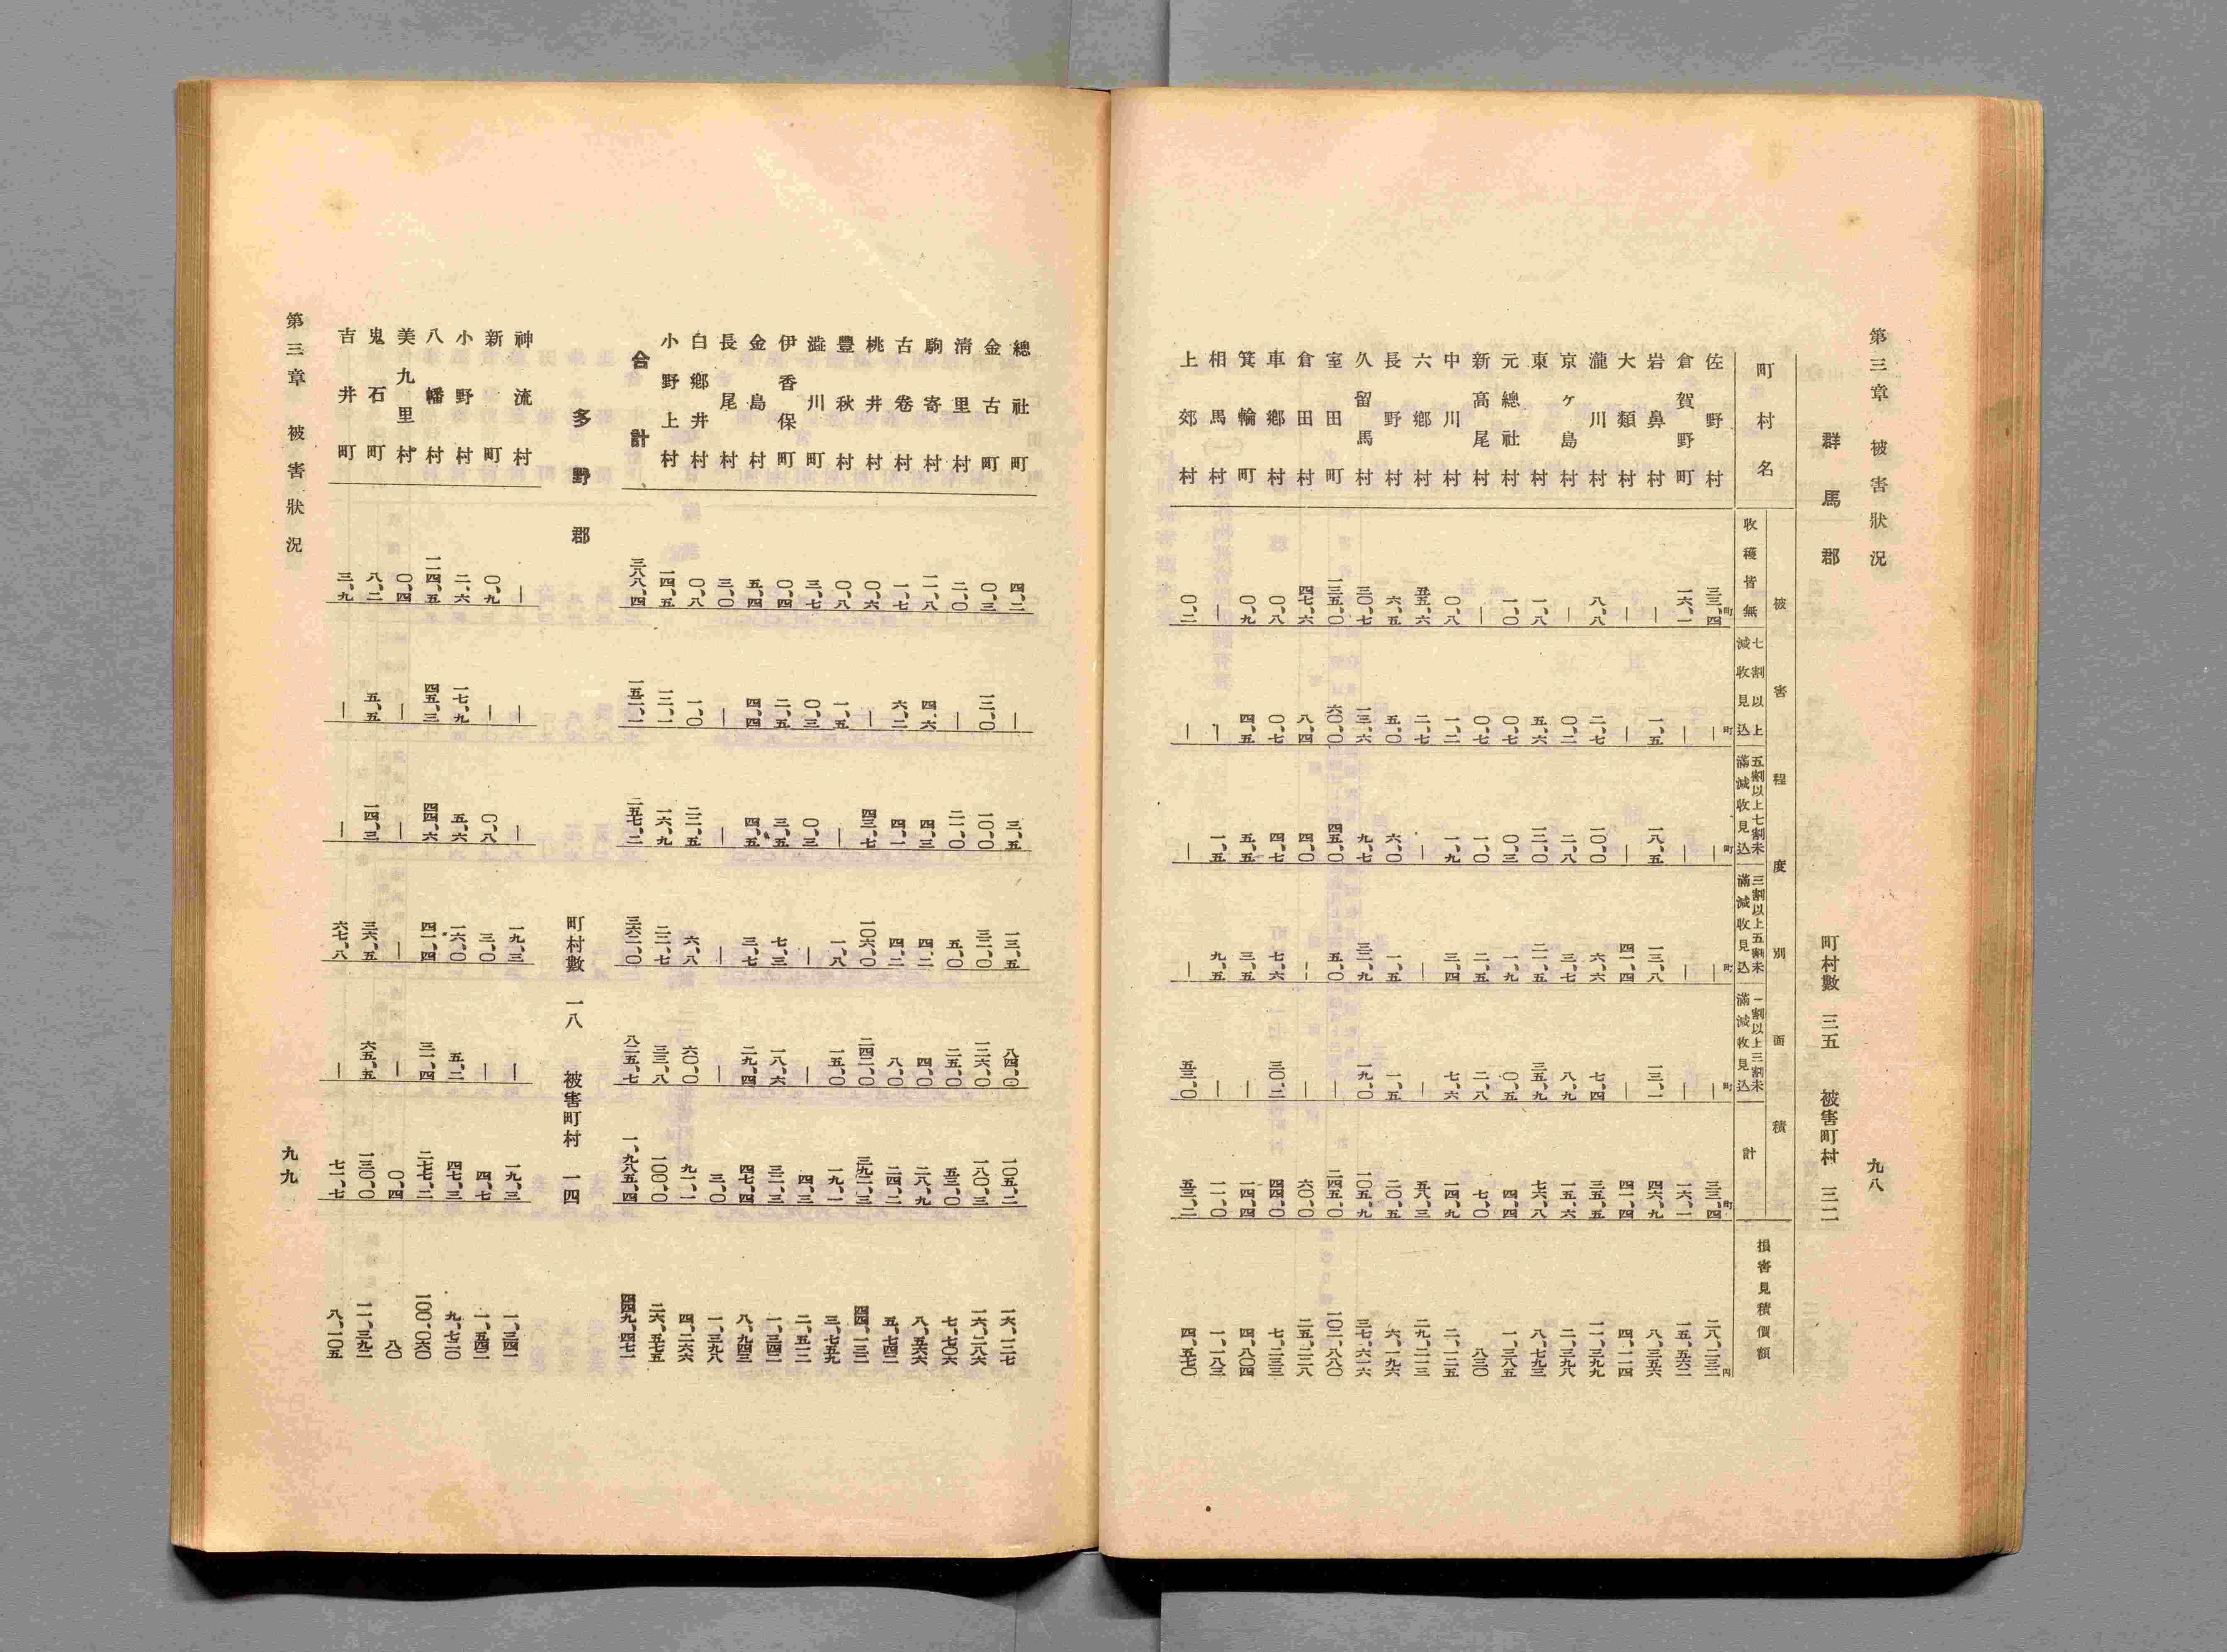 第三章 被害狀況 九八
群馬郡 町村數 三五 被害町村 三二
町村名 被害程度別面積 損害見積價額
收穫皆無 七割以上減收見込 五割以上七割未滿減收見込 三割以上五割未滿減收見込 一割以上三割未滿減收見込 計
町 町 町 町 町 町 円
佐野村 三三、四 — — — — 三三、四 二八、二三二
倉賀野町 一六、一 — — — — 一六、一 一五、五六二
岩鼻村 — 一、五 一八、五 一三、八 一三、一 四六、九 八、三五六
大類村 — — — 四一、四 — 四一、四 四、一一四
瀧川村 八、八 二、七 一〇、〇 六、六 七、四 三五、五 一一、三九九
京ヶ島村 — 〇、二 二、八 三、七 八、九 一五、六 二、三九八
東村 一、八 五、六 一二、〇 二一、五 三五、九 七六、八 八、七九三
元總社村 一、〇 〇、七 〇、三 一、九 〇、五 四、四 一、三八五
新高尾村 — 〇、七 一、〇 二、五 二、八 七、〇 八三〇
中川村 〇、八 一、二 一、九 三、四 七、六 一四、九 二、一二五
六鄉村 五五、六 二、七 — — — 五八、三 二九、二一三
長野村 六、五 五、〇 六、〇 一、五 一、五 二〇、五 六、一九六
久留馬村 三〇、七 一三、六 九、七 三二、九 一九、〇 一〇五、九 三七、六一六
室田町 一三五、〇 六〇、〇 四五、〇 五、〇 — 二四五、〇 一〇二、八八〇
倉田村 四七、六 八、四 四、〇 — — 六〇、〇 二五、二二八
車鄉村 〇、八 〇、七 四、七 七、六 三〇、二 四四、〇 七、二三三
箕輪町 〇、九 四、五 五、五 三、五 — 一四、四 四、八〇四
相馬村 — — 一、五 九、五 — 一一、〇 一、一八三
上郊村 〇、二 — — — 五三、〇 五三、二 四、五七〇
總社町 四、二 — 三、五 一三、五 八四、〇 一〇五、二 一六、一二七
金古町 〇、三 一二、〇 一〇、〇 三二、〇 一二六、〇 一八〇、三 一六、二八六
清里村 二、〇 — 二一、〇 五、〇 二五、〇 五三、〇 七、七〇六
駒寄村 一一、八 四、六 四、三 四、二 四、〇 二八、九 八、五六六
古卷村 一、七 六、二 四、一 四、二 八、〇 二四、二 五、七四二
桃井村 〇、六 — 四三、七 一〇六、〇 二四二、〇 三九二、三 四四、一三二
豐秋村 〇、八 一、五 — 一、八 一五、〇 一九、一 三、七五九
澁川町 三、七 〇、三 〇、三 — — 四、三 二、五一二
伊香保町 〇、四 二、五 三、五 七、三 一八、六 三二、三 一、三四二
金島村 五、四 四、四 四、五 三、七 二九、四 四七、四 八、九四三
長尾村 三、〇 — — — — 三、〇 一、三九八
白鄉井村 〇、八 一、〇 二二、五 六、八 六〇、〇 九一、一 四、二六六
小野上村 一四、五 一二、一 一六、九 二二、七 三三、八 一〇〇、〇 二六、五七五
合計 三八八、四 一五二、一 二五七、二 三六二、〇 八二五、七 一、九八五、四 四四九、四七一
多野郡 町村數 一八 被害町村 一四
神流村 — — — 一九、三 — 一九、三 一、三四一
新町 〇、九 — 〇、八 三、〇 — 四、七 一、五四二
小野村 二、六 一七、九 五、六 一六、〇 五、二 四七、三 九、七二〇
八幡村 一一四、五 四五、三 四四、六 四一、四 三一、四 二七七、二 一〇〇、〇六〇
美九里村 〇、四 — — — — 〇、四 八〇
鬼石町 八、二 五、五 一四、三 三六、五 六五、五 一三〇、〇 一一、三九二
吉井町 三、九 — — 六七、八 — 七一、七 八、一〇五
第三章 被害狀況 九九